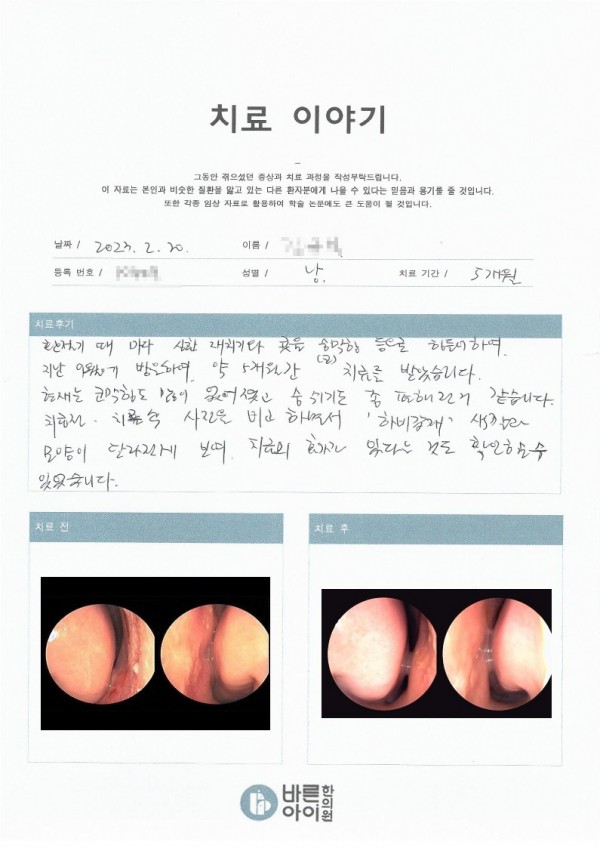 치료 이야기
그동안 겪으셨던 증상과 치료 과정을 작성부탁드립니다.
이 자료는 본인과 비슷한 질환을 앓고 있는 다른 환자분에게 나을 수 있다는 믿음과 용기를 줄 것입니다.
또한 각종 임상 자료로 활용하여 학술 논문에도 큰 도움이 될 것입니다.
날짜 / 2023. 2. 20. 이름 /
등록 번호 / 성별 / 남. 치료 기간 / 5개월
치료후기
환절기 때 마다 심한 재치기와 콧물 (코)막힘 등으로 힘들어하여,
지난 방문하여, 약 5개월간 치료를 받았습니다.
현재는 코막힘도 많이 없어졌고 숨쉬기도 좀 편해진거 같습니다.
치료전. 치료후 사진을 비교하면서 '하비갑개' 색깔과
모양이 달라진게 보여, 치료의 효과가 있다는 것도 확인할 수
있었습니다.
치료 전
치료 후
바른아이한의원